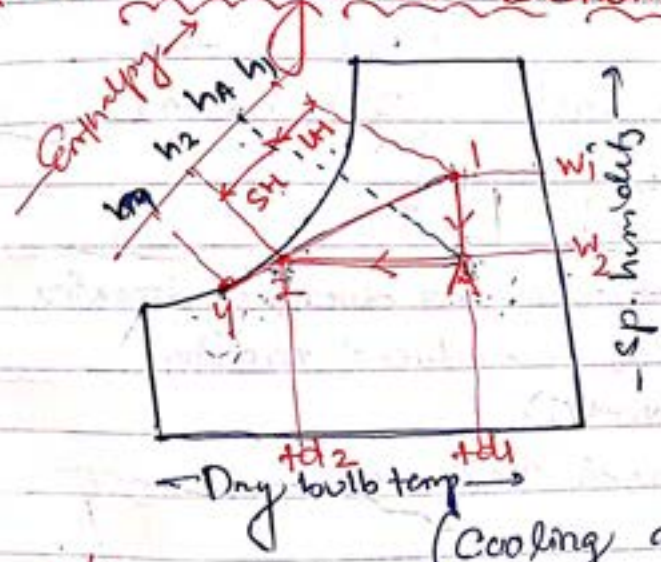 Enthalpy →
h1
hA
h2
LH
SH
1
W1
W2
A
2
4
sp. humidity →
td2
td1
← Dry bulb temp →
(Cooling